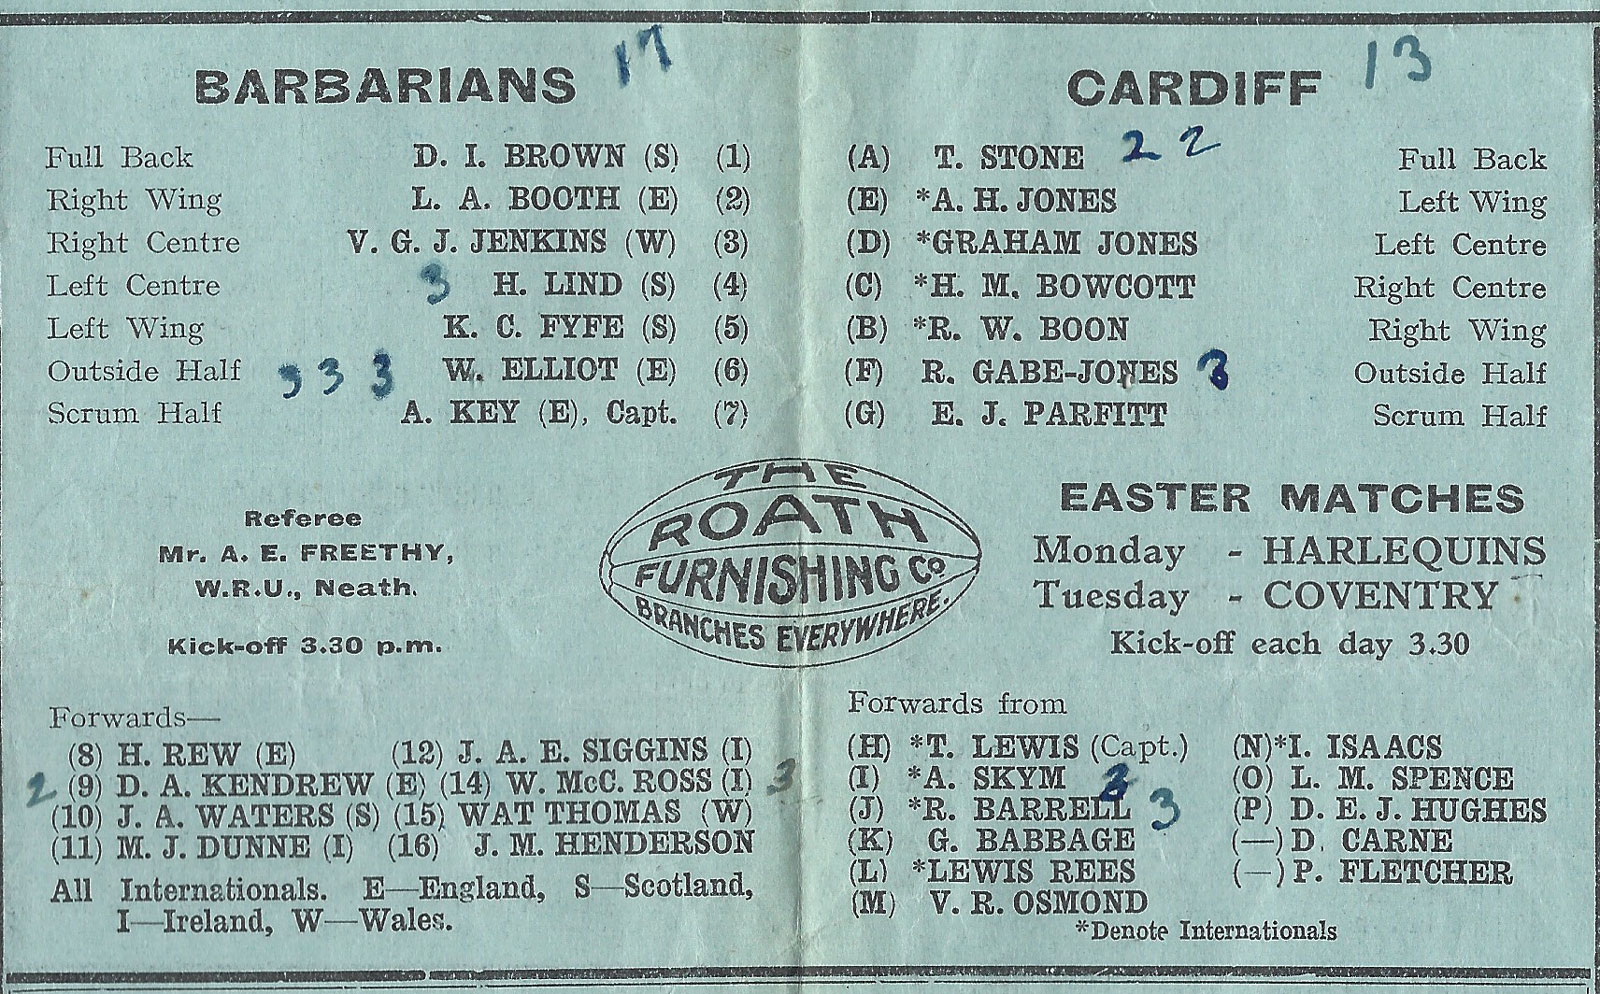 BARBARIANS 17
Full Back D. I. BROWN (S) (1)
Right Wing L. A. BOOTH (E) (2)
Right Centre V. G. J. JENKINS (W) (3)
Left Centre 3 H. LIND (S) (4)
Left Wing K. C. FYFE (S) (5)
Outside Half 3 3 3 W. ELLIOT (E) (6)
Scrum Half A. KEY (E), Capt. (7)
CARDIFF 13
(A) T. STONE 2 2 Full Back
(E) *A. H. JONES Left Wing
(D) *GRAHAM JONES Left Centre
(C) *H. M. BOWCOTT Right Centre
(B) *R. W. BOON Right Wing
(F) R. GABE-JONES 3 Outside Half
(G) E. J. PARFITT Scrum Half
Referee
Mr. A. E. FREETHY,
W.R.U., Neath.
Kick-off 3.30 p.m.
THE
ROATH
FURNISHING Co.
BRANCHES EVERYWHERE.
EASTER MATCHES
Monday - HARLEQUINS
Tuesday - COVENTRY
Kick-off each day 3.30
Forwards—
(8) H. REW (E) (12) J. A. E. SIGGINS (I)
2 (9) D. A. KENDREW (E) (14) W. McC. ROSS (I) 3
(10) J. A. WATERS (S) (15) WAT THOMAS (W)
(11) M. J. DUNNE (I) (16) J. M. HENDERSON
All Internationals. E—England, S—Scotland,
I—Ireland, W—Wales.
Forwards from
(H) *T. LEWIS (Capt.) (N) *I. ISAACS
(I) *A. SKYM 3 (O) L. M. SPENCE
(J) *R. BARRELL 3 (P) D. E. J. HUGHES
(K) G. BABBAGE (—) D. CARNE
(L) *LEWIS REES (—) P. FLETCHER
(M) V. R. OSMOND
*Denote Internationals